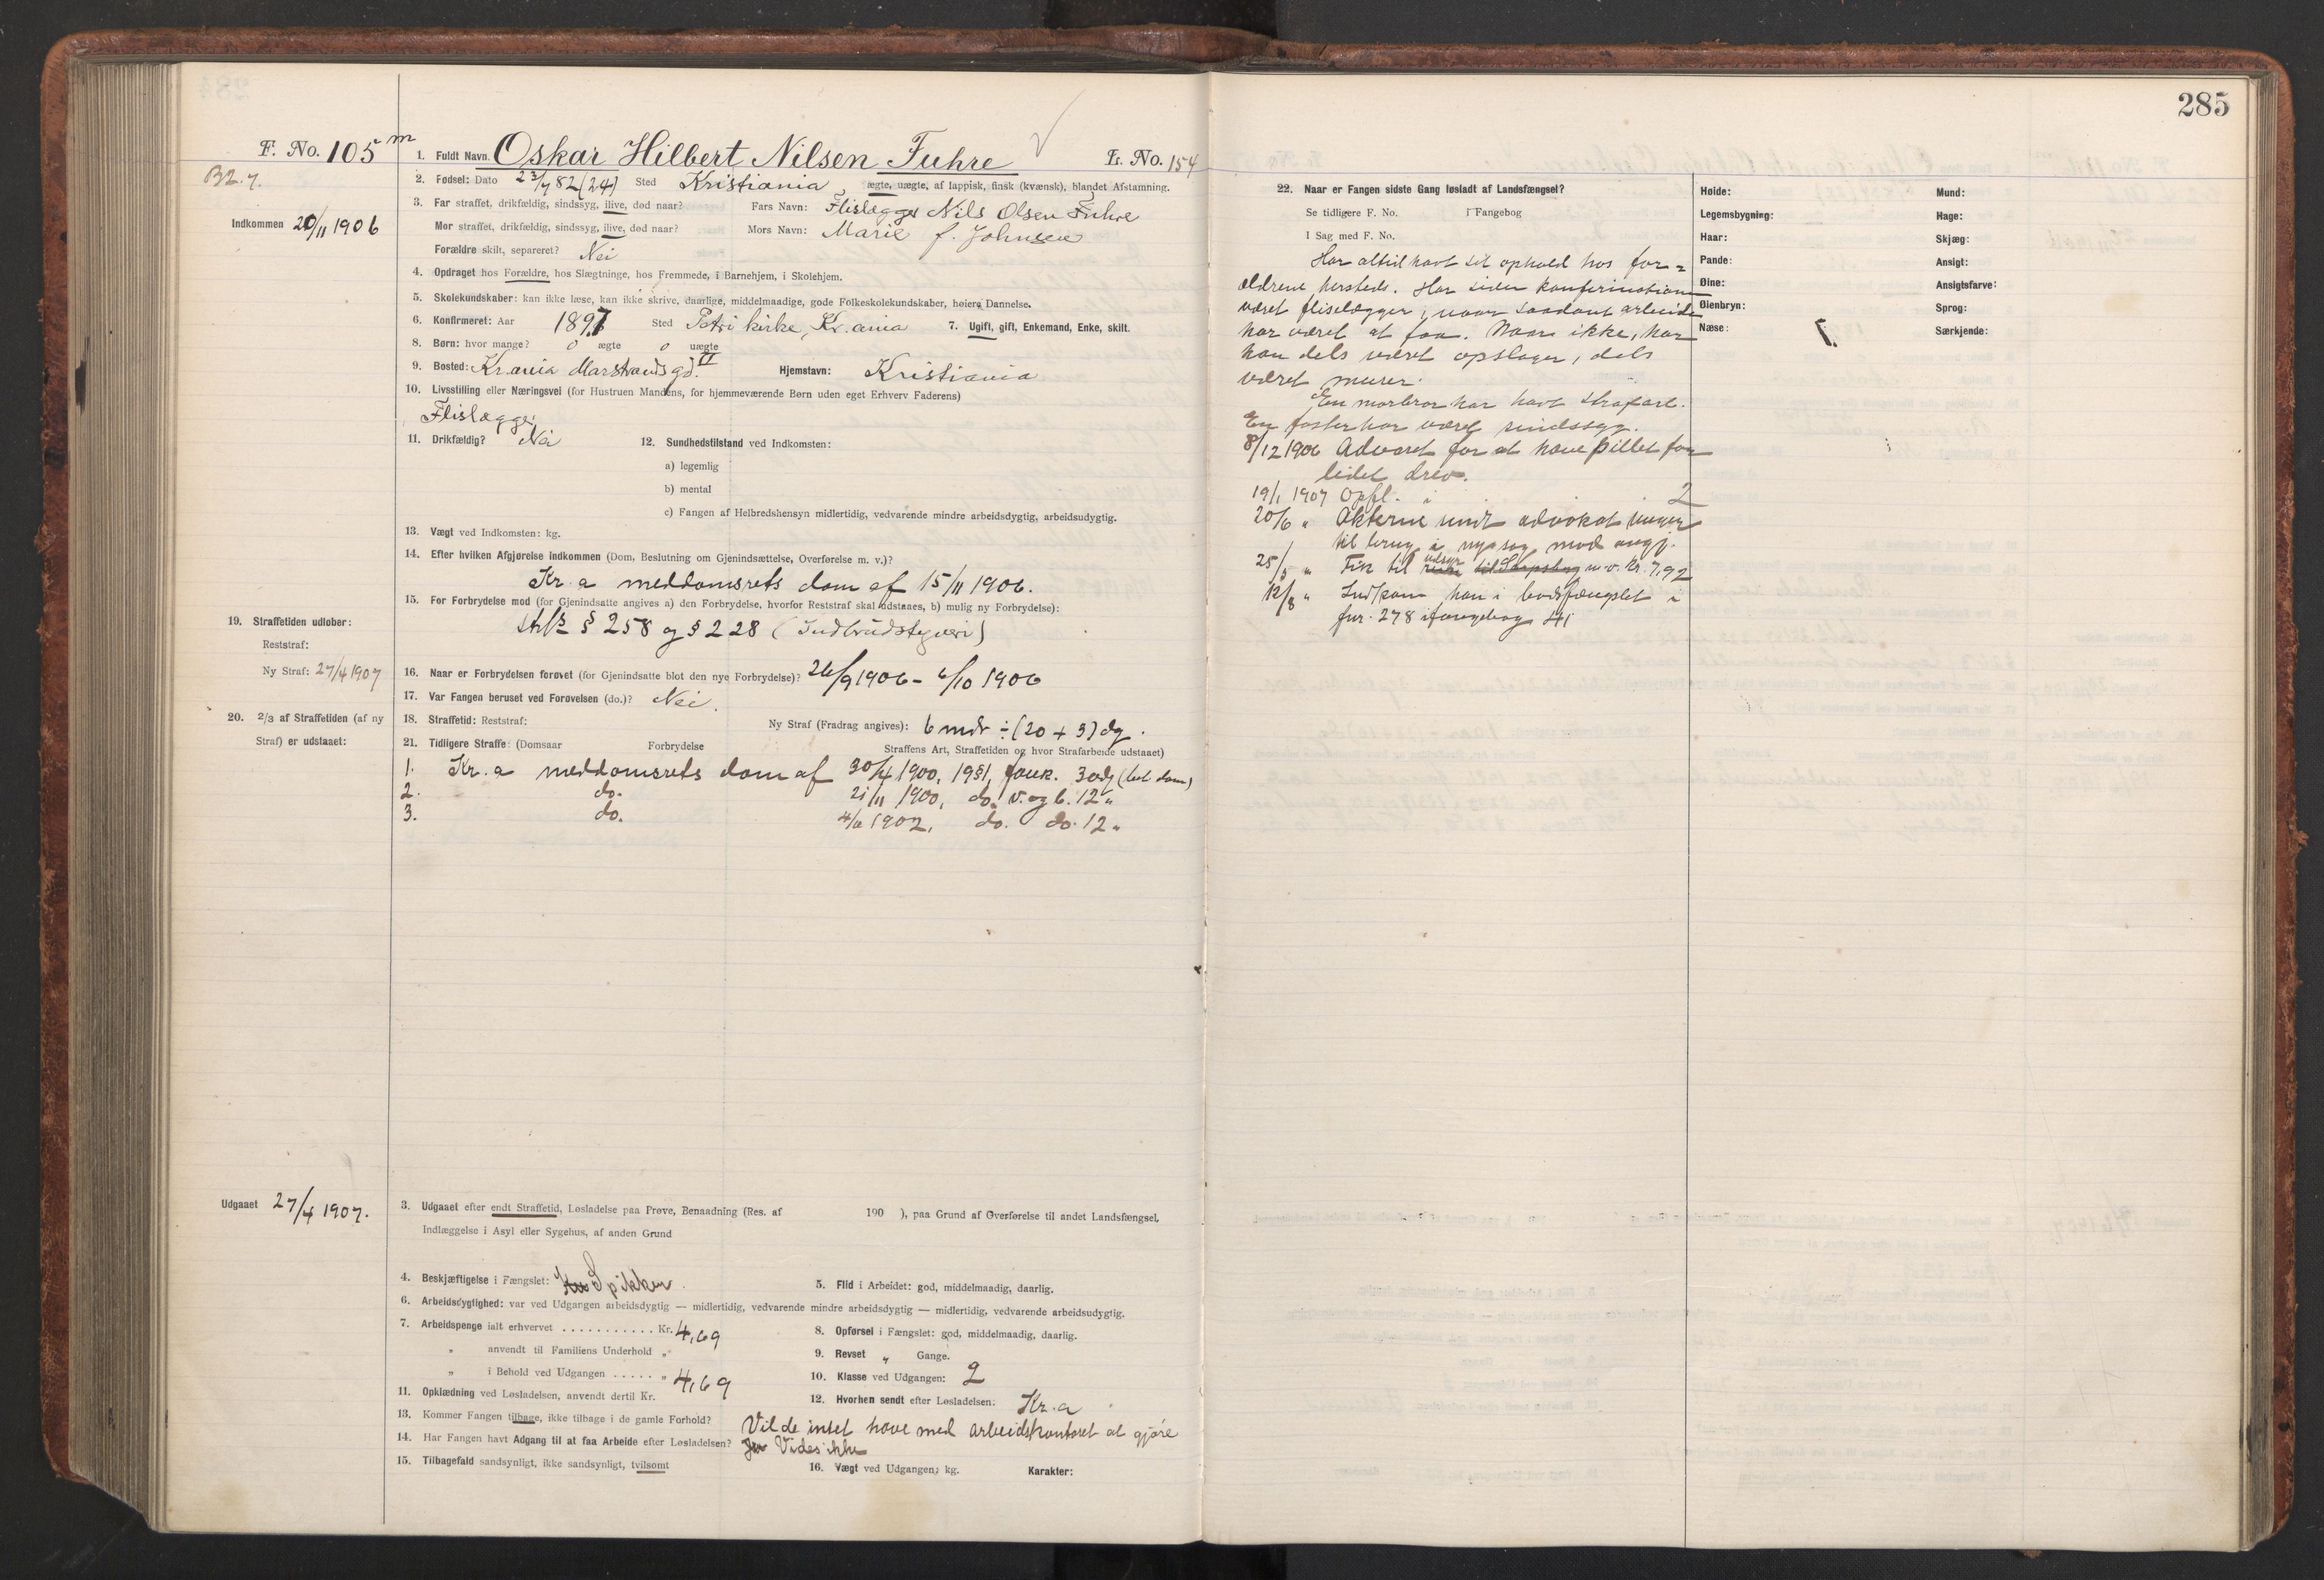 285
F. No. 105 m
1. Fuldt Navn. Oskar Hilbert Nilsen Fuhre
Lr. No. 154
B2.7.
2. Fødsel: Dato 23/7 82 (24) Sted Kristiania, ægte, uægte, af lappisk, finsk (kvænsk), blandet Afstamning.
Indkommen 20/11 1906
3. Far straffet, drikfældig, sindssyg, ilive, død naar? Fars Navn: Flislægger Nils Olsen Fuhre
Mor straffet, drikfældig, sindssyg, ilive, død naar? Mors Navn: Marie f. Johnsen
Forældre skilt, separeret? Nei
4. Opdraget hos Forældre, hos Slægtninge, hos Fremmede, i Barnehjem, i Skolehjem.
5. Skolekundskaber: kan ikke læse, kan ikke skrive, daarlige, middelmaadige, gode Folkeskolekundskaber, høiere Dannelse.
6. Konfirmeret: Aar 1897 Sted Petri kirke, Kr.ania 7. Ugift, gift, Enkemand, Enke, skilt.
8. Børn: hvor mange? 0 ægte 0 uægte
9. Bosted: Kr.ania Marstrandsgd. VI Hjemstavn: Kristiania
10. Livsstilling eller Næringsvei (for Hustruen Mandens, for hjemmeværende Børn uden eget Erhverv Faderens)
Flislægger
11. Drikfældig? Nei 12. Sundhedstilstand ved Indkomsten:
a) legemlig
b) mental
c) Fangen af Helbredshensyn midlertidig, vedvarende mindre arbeidsdygtig, arbeidsudygtig.
13. Vægt ved Indkomsten: kg.
14. Efter hvilken Afgjørelse indkommen (Dom, Beslutning om Gjenindsættelse, Overførelse m. v.)?
Kr.a meddomsrets dom af 15/11 1906.
15. For Forbrydelse mod (for Gjenindsatte angives a) den Forbrydelse, hvorfor Reststraf skal udstaaes, b) mulig ny Forbrydelse):
§ 258 og § 228 (Indbrudstyveri)
19. Straffetiden udløber:
Reststraf:
Ny Straf: 27/4 1907
16. Naar er Forbrydelsen forøvet (for Gjenindsatte blot den nye Forbrydelse)? 26/9 1906 - 6/10 1906
17. Var Fangen beruset ved Forøvelsen (do.)? Nei.
20. 2/3 af Straffetiden (af ny Straf) er udstaaet:
18. Straffetid: Reststraf: Ny Straf (Fradrag angives): 6 mdr ÷ (20 + 3) dg.
21. Tidligere Straffe: (Domsaar Forbrydelse Straffens Art, Straffetiden og hvor Strafarbeide udstaaet)
1. Kr.a meddomsrets dom af 30/4 1900, 19§1, fænk. 30 dg (bet. dom)
2. do. 21/11 1900, do. v. og b. 12 "
3. do. 1902, do. do. 12 "
Udgaaet 27/4 1907.
3. Udgaaet efter endt Straffetid, Løsladelse paa Prøve, Benaadning (Res. af 190 ), paa Grund af Overførelse til andet Landsfængsel,
Indlæggelse i Asyl eller Sygehus, af anden Grund
4. Beskjæftigelse i Fængslet: Spikker
5. Flid i Arbeidet: god, middelmaadig, daarlig.
6. Arbeidsdygtighed: var ved Udgangen arbeidsdygtig — midlertidig, vedvarende mindre arbeidsdygtig — midlertidig, vedvarende arbeidsudygtig.
7. Arbeidspenge ialt erhvervet . . . . . . . . . . . Kr. 4,69
8. Opførsel i Fængslet: god, middelmaadig, daarlig.
" anvendt til Familiens Underhold "
9. Revset " Gange.
" i Behold ved Udgangen . . . . . " 4,69
10. Klasse ved Udgangen: 2
11. Opklædning ved Løsladelsen, anvendt dertil Kr.
12. Hvorhen sendt efter Løsladelsen: Kr.a
13. Kommer Fangen tilbage, ikke tilbage i de gamle Forhold? Vilde intet have med arbeidskontoret at gjøre
14. Har Fangen havt Adgang til at faa Arbeide efter Løsladelsen? Vides ikke
15. Tilbagefald sandsynligt, ikke sandsynligt, tvilsomt
16. Vægt ved Udgangen: kg. Karakter:
22. Naar er Fangen sidste Gang løsladt af Landsfængsel?
Se tidligere F. No. i Fangebog
I Sag med F. No.
Har altid havt sit ophold hos for=
ældrene hersteds. Har siden konfirmationen
været fliselægger, naar saadant arbeide
har været at faa. Naar ikke, har
han dels været opslager, dels
været murer.
En morbror har havt strafarb.
En faster har været sindssyg.
8/12 1906 Advaret for at have pillet for
lidet drev.
19/1 1907 Opfl. i 2
20/6 " Akterne sendt advokat
til brug i ny sag mod angj.
25/5 " Fik til udstyr m.v. Kr. 7,92
12/8 " Indkom han i bodsfængslet i
fnr. 278 i fangebog 41
Høide:
Legemsbygning:
Haar:
Pande:
Øine:
Øienbryn:
Næse:
Mund:
Hage:
Skjæg:
Ansigt:
Ansigtsfarve:
Sprog:
Særkjende: